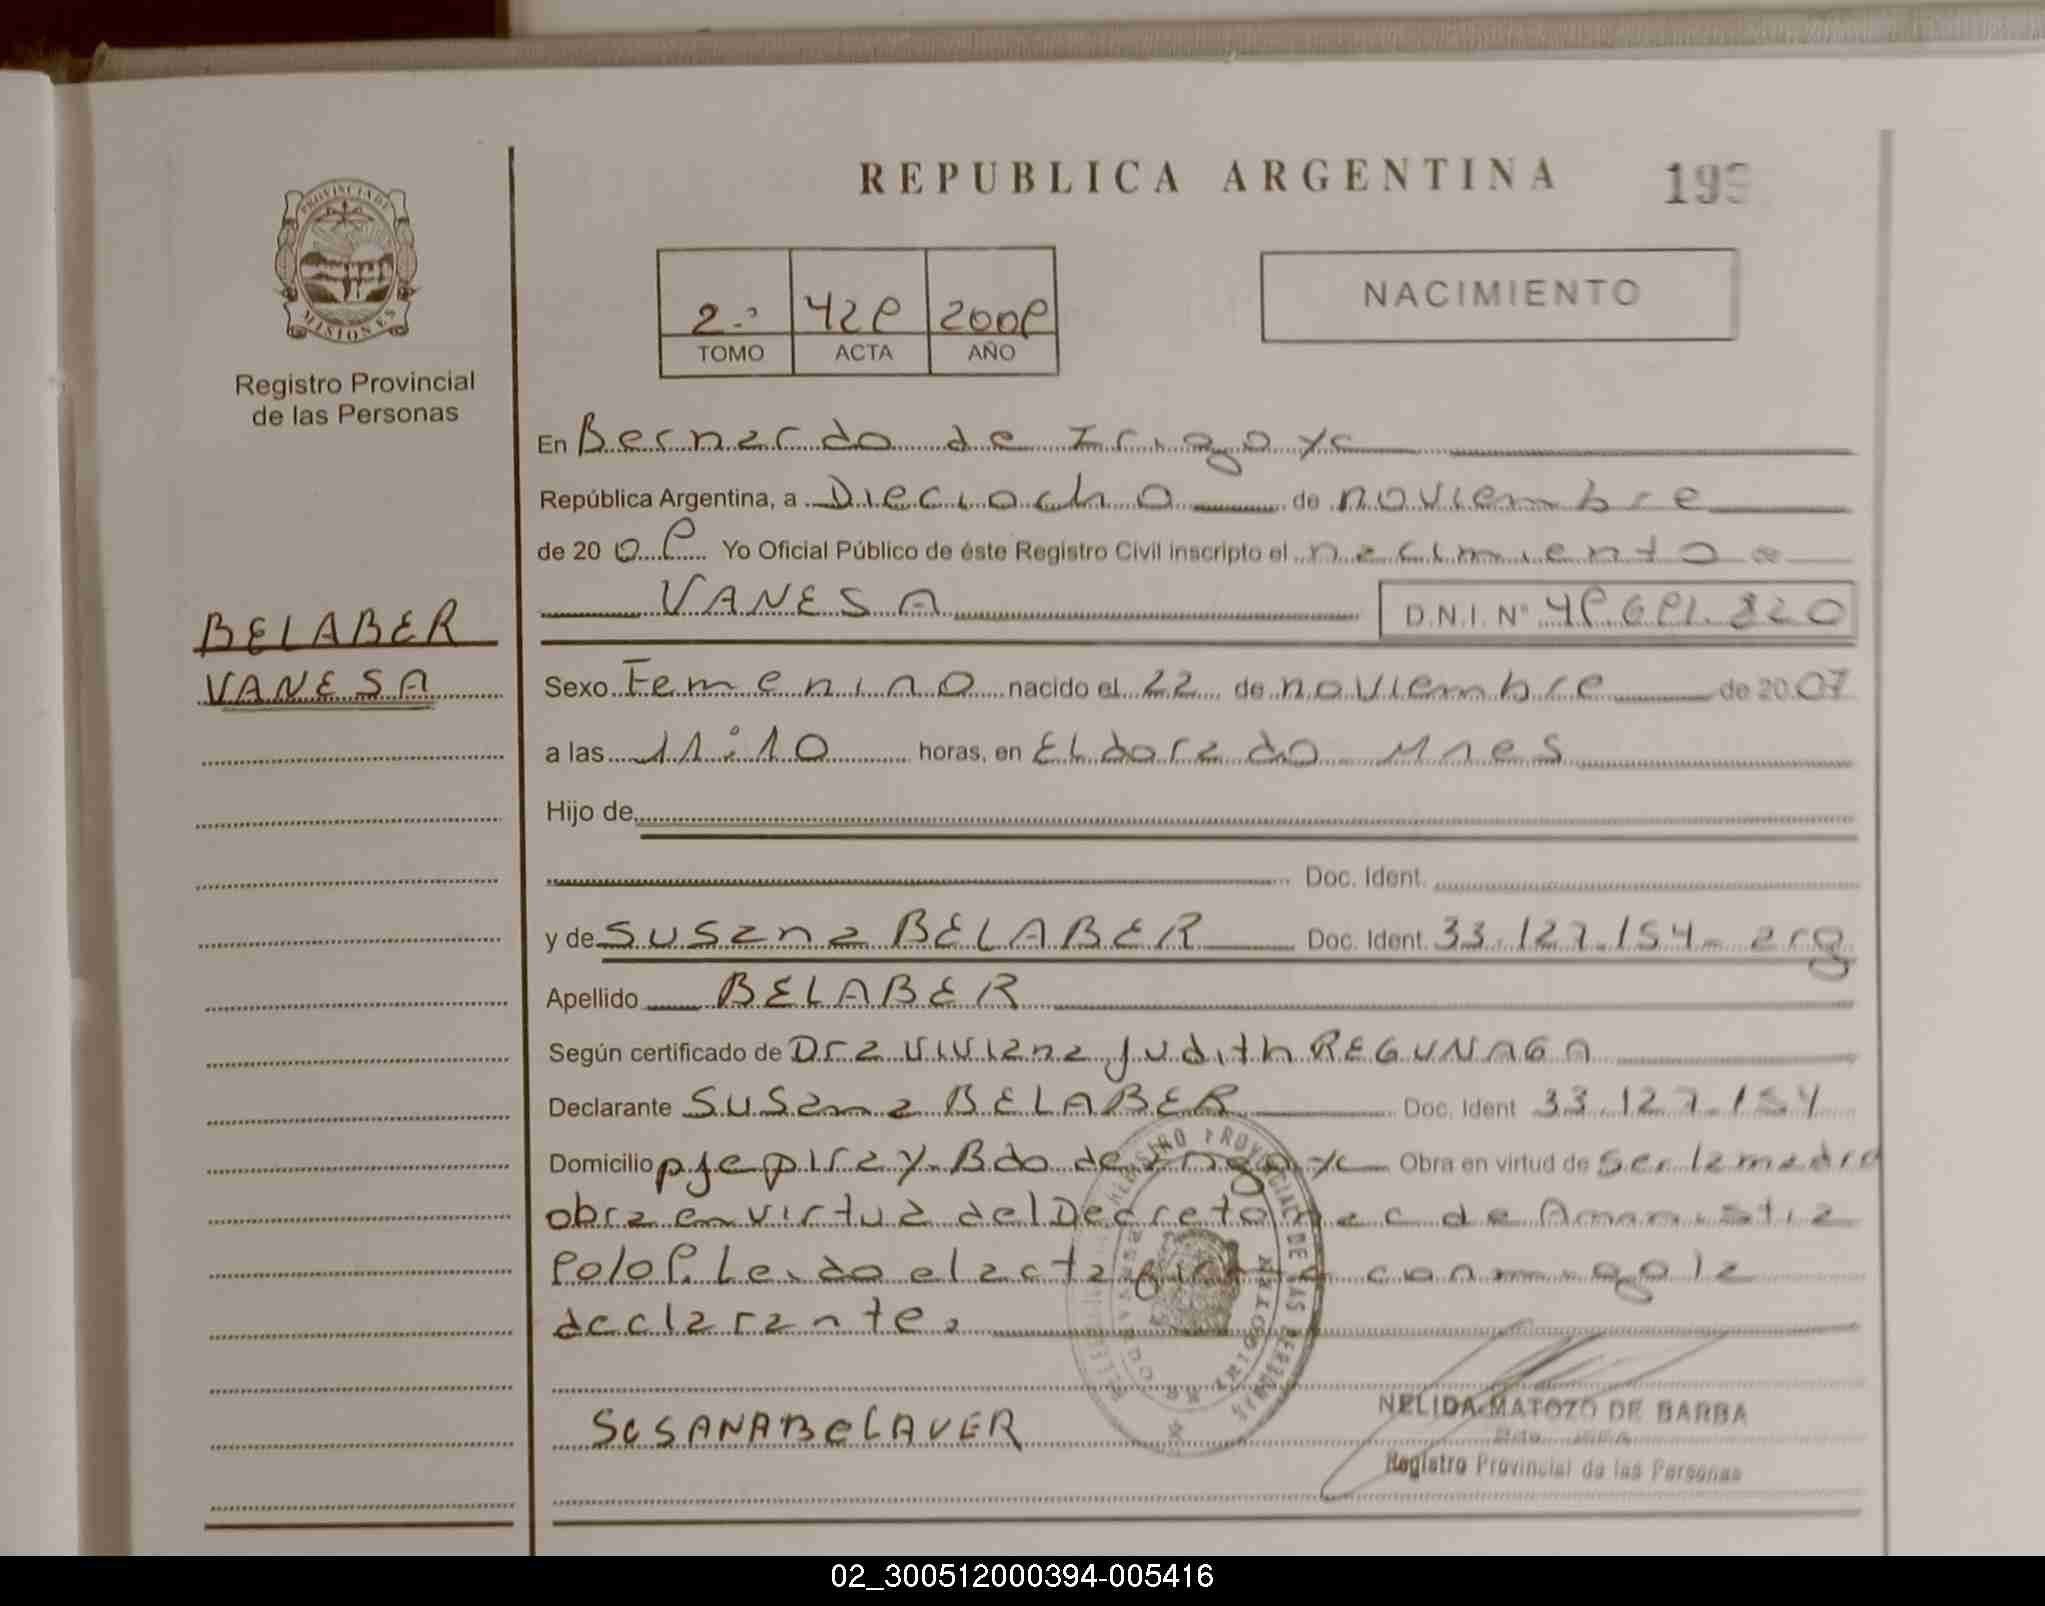 REPUBLICA ARGENTINA
PROVINCIA DE
MISIONES
Registro Provincial
de las Personas
NACIMIENTO
2.º 428 2008
TOMO ACTA AÑO
En Bernardo de Irigoye
República Argentina, a Dieciocho de noviembre
de 2008 Yo Oficial Público de éste Registro Civil inscripto el nacimiento de
VANESA D.N.I. Nº 48.681.320
BELABER
VANESA
Sexo Femenino nacido el 22 de noviembre de 2007
a las 11:10 horas, en Eldorado Mnes
Hijo de
Doc. Ident.
y de Susana BELABER Doc. Ident. 33.127.154- arg
Apellido BELABER
Según certificado de Dra Viviana Judith REGUNAGA
Declarante Susana BELABER Doc. Ident 33.127.154
Domicilio pje piray- Bdo de Irigoye Obra en virtud de Ser la madre
obra en virtud del Decreto nac de Amnistia
90/08. Leido el acta firma conmigo la
declarante.
REGISTRO PROVINCIAL DE LAS PERSONAS
IRIGOYEN
SUSANA BELAVER
NELIDA MATOZO DE BARBA
Registro Provincial de las Personas
02_300512000394-005416